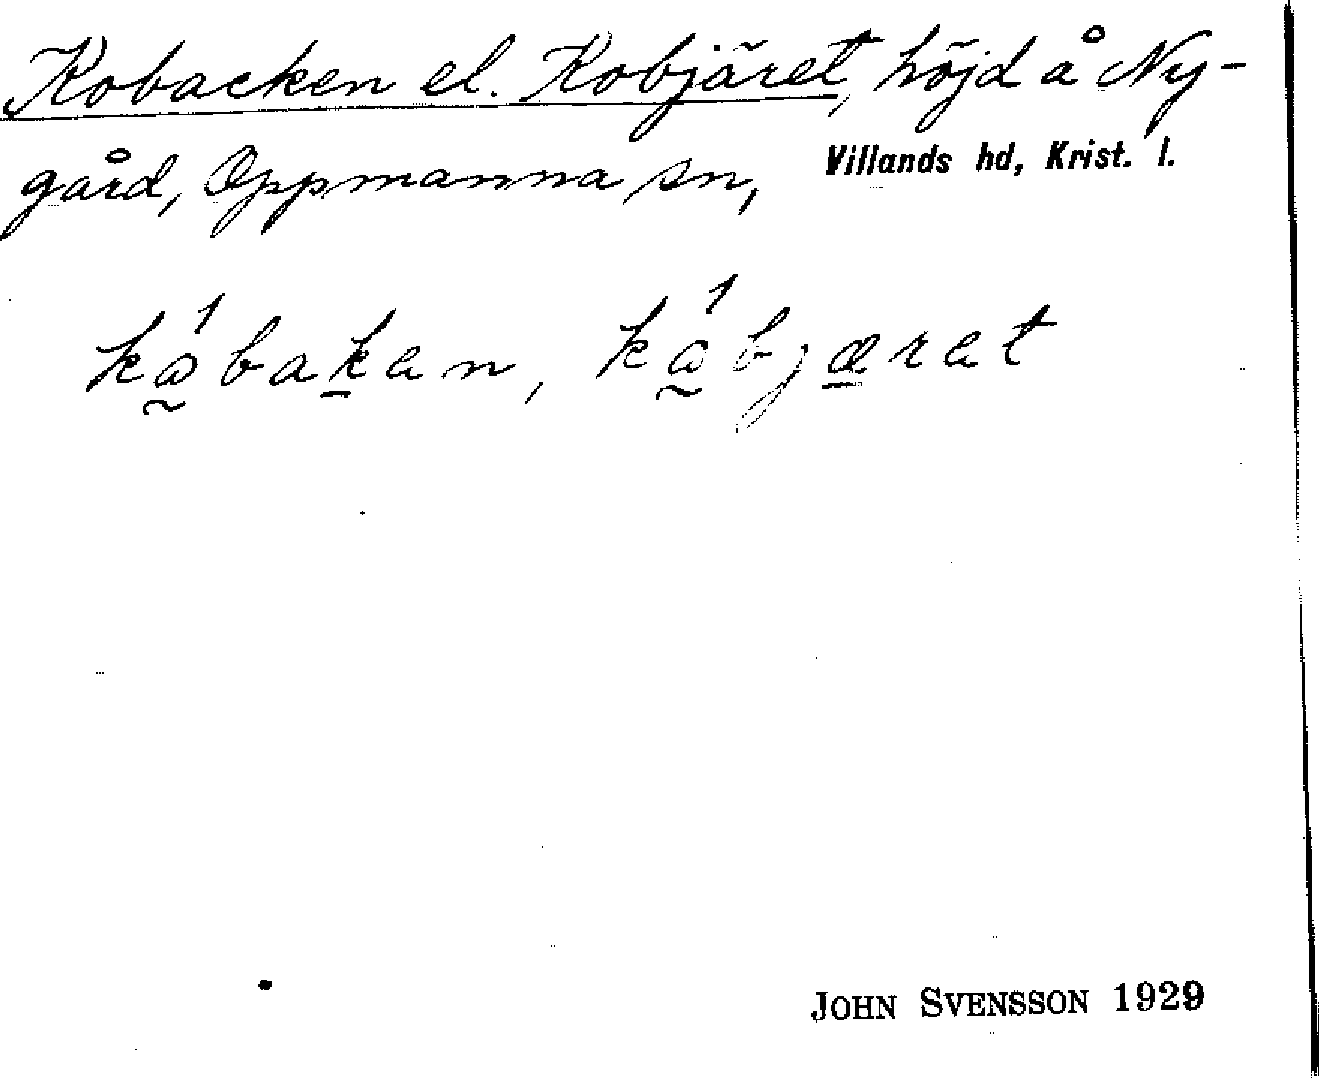 Kobacken el. Kobjäret, höjd å Ny-
gård, Oppmanna sn, Villands hd, Krist. l.
kåbakan, kåbjærat
JOHN SVENSSON 1929